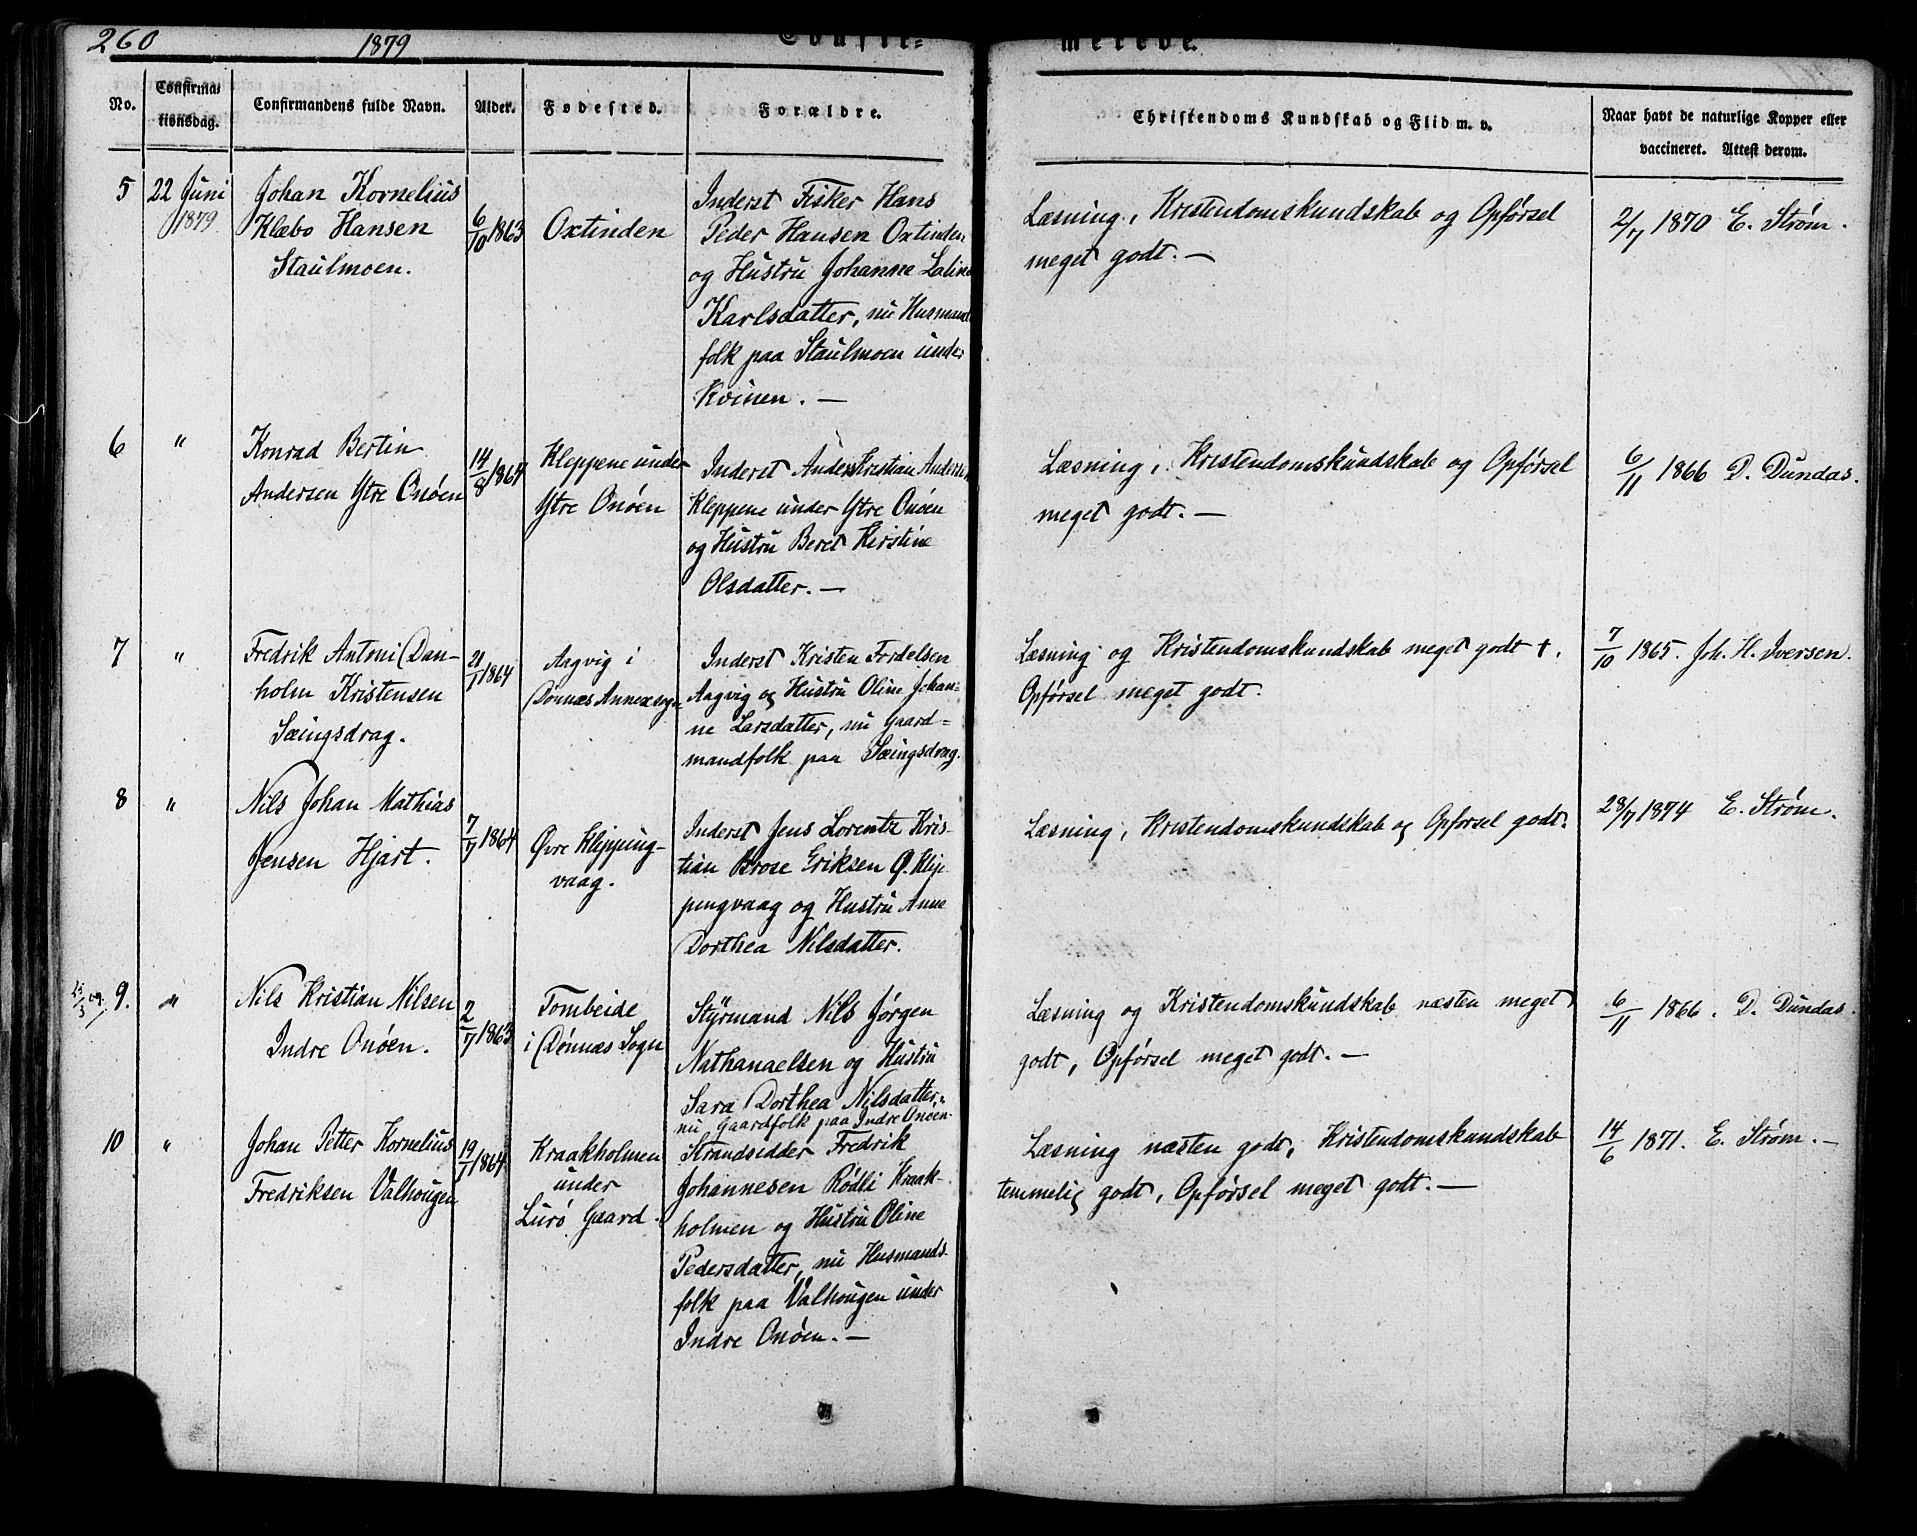 260
1879
Confir=
merede.
No.
Confirma=
tionsdag.
Confirmandens fulde Navn.
Alder.
Fødested.
Forældre.
Christendoms Kundskab og Flid m. v.
Naar havt de naturlige Kopper eller
vaccineret. Attest derom.
5
22 Juni
1879
Johan Kornelius
Klæbo Hansen
Staulmoen.
6/10 1863
Oxtinden
Inderst Fisker Hans
Peder Hansen Oxtinden
og Hustru Johanne Lalina
Karlsdatter, nu Husmands
folk paa Staulmoen under
Kvinen. —
Læsning, Kristendomskundskab og Opførsel
meget godt. —
2/7 1870 E. Strøm.
6
"
Konrad Bertin
Andersen Ytre Onøen
14/8 1864
Kleppene under
Ytre Onøen
Inderst Anders Kristian Andersen
Kleppene under Ytre Onøen
og Hustru Beret Kirstine
Olsdatter. —
Læsning, Kristendomskundskab og Opførsel
meget godt. —
6/11 1866 D. Dundas.
7
"
Fredrik Antoni Dan-
holm Kristensen
Sæingsdrag.
21/7 1864
Aagvig i
Dønnæs Annexsogn
Inderst Kristen Fredelsen
Aagvig og Hustru Oline Johan=
ne Larsdatter, nu Gaard=
mandfolk paa Sæingsdrag.
Læsning og Kristendomskundskab meget godt +,
Opførsel meget godt.
7/10 1865. Joh. H. Iversen.
8
"
Nils Johan Mathias
Jensen Hjart.
7/7 1864
Øvre Kleppeng-
vaag.
Inderst Jens Lorentz Kris-
tian Brose Eriksen Ø. Klep-
pengvaag og Hustru Anne
Dorthea Nilsdatter.
Læsning, Kristendomskundskab og Opførsel godt.
28/7 1874 E. Strøm.
9.
"
Nils Kristian Nilsen
Indre Onøen.
2/7 1863
Tombeide
i Dønnæs Sogn
Styrmand Nils Jørgen
Nathanaelsen og Hustru
Sara Dorthea Nilsdatter,
nu Gaardfolk paa Indre Onøen.
Læsning og Kristendomskundskab næsten meget
godt, Opførsel meget godt. —
6/11 1866. D. Dundas.
10
"
Johan Petter Kornelius
Fredriksen Valhougen
19/7 1864
Kraakholmen
under
Lurø Gaard.
Strandsidder Fredrik
Johannesen Rødli Kraak-
holmen og Hustru Oline
Pedersdatter, nu Husmands-
folk paa Valhougen under
Indre Onøen. —
Læsning næsten godt, Kristendomskundskab
temmelig godt, Opførsel meget godt. —
14/6 1871. E. Strøm. —